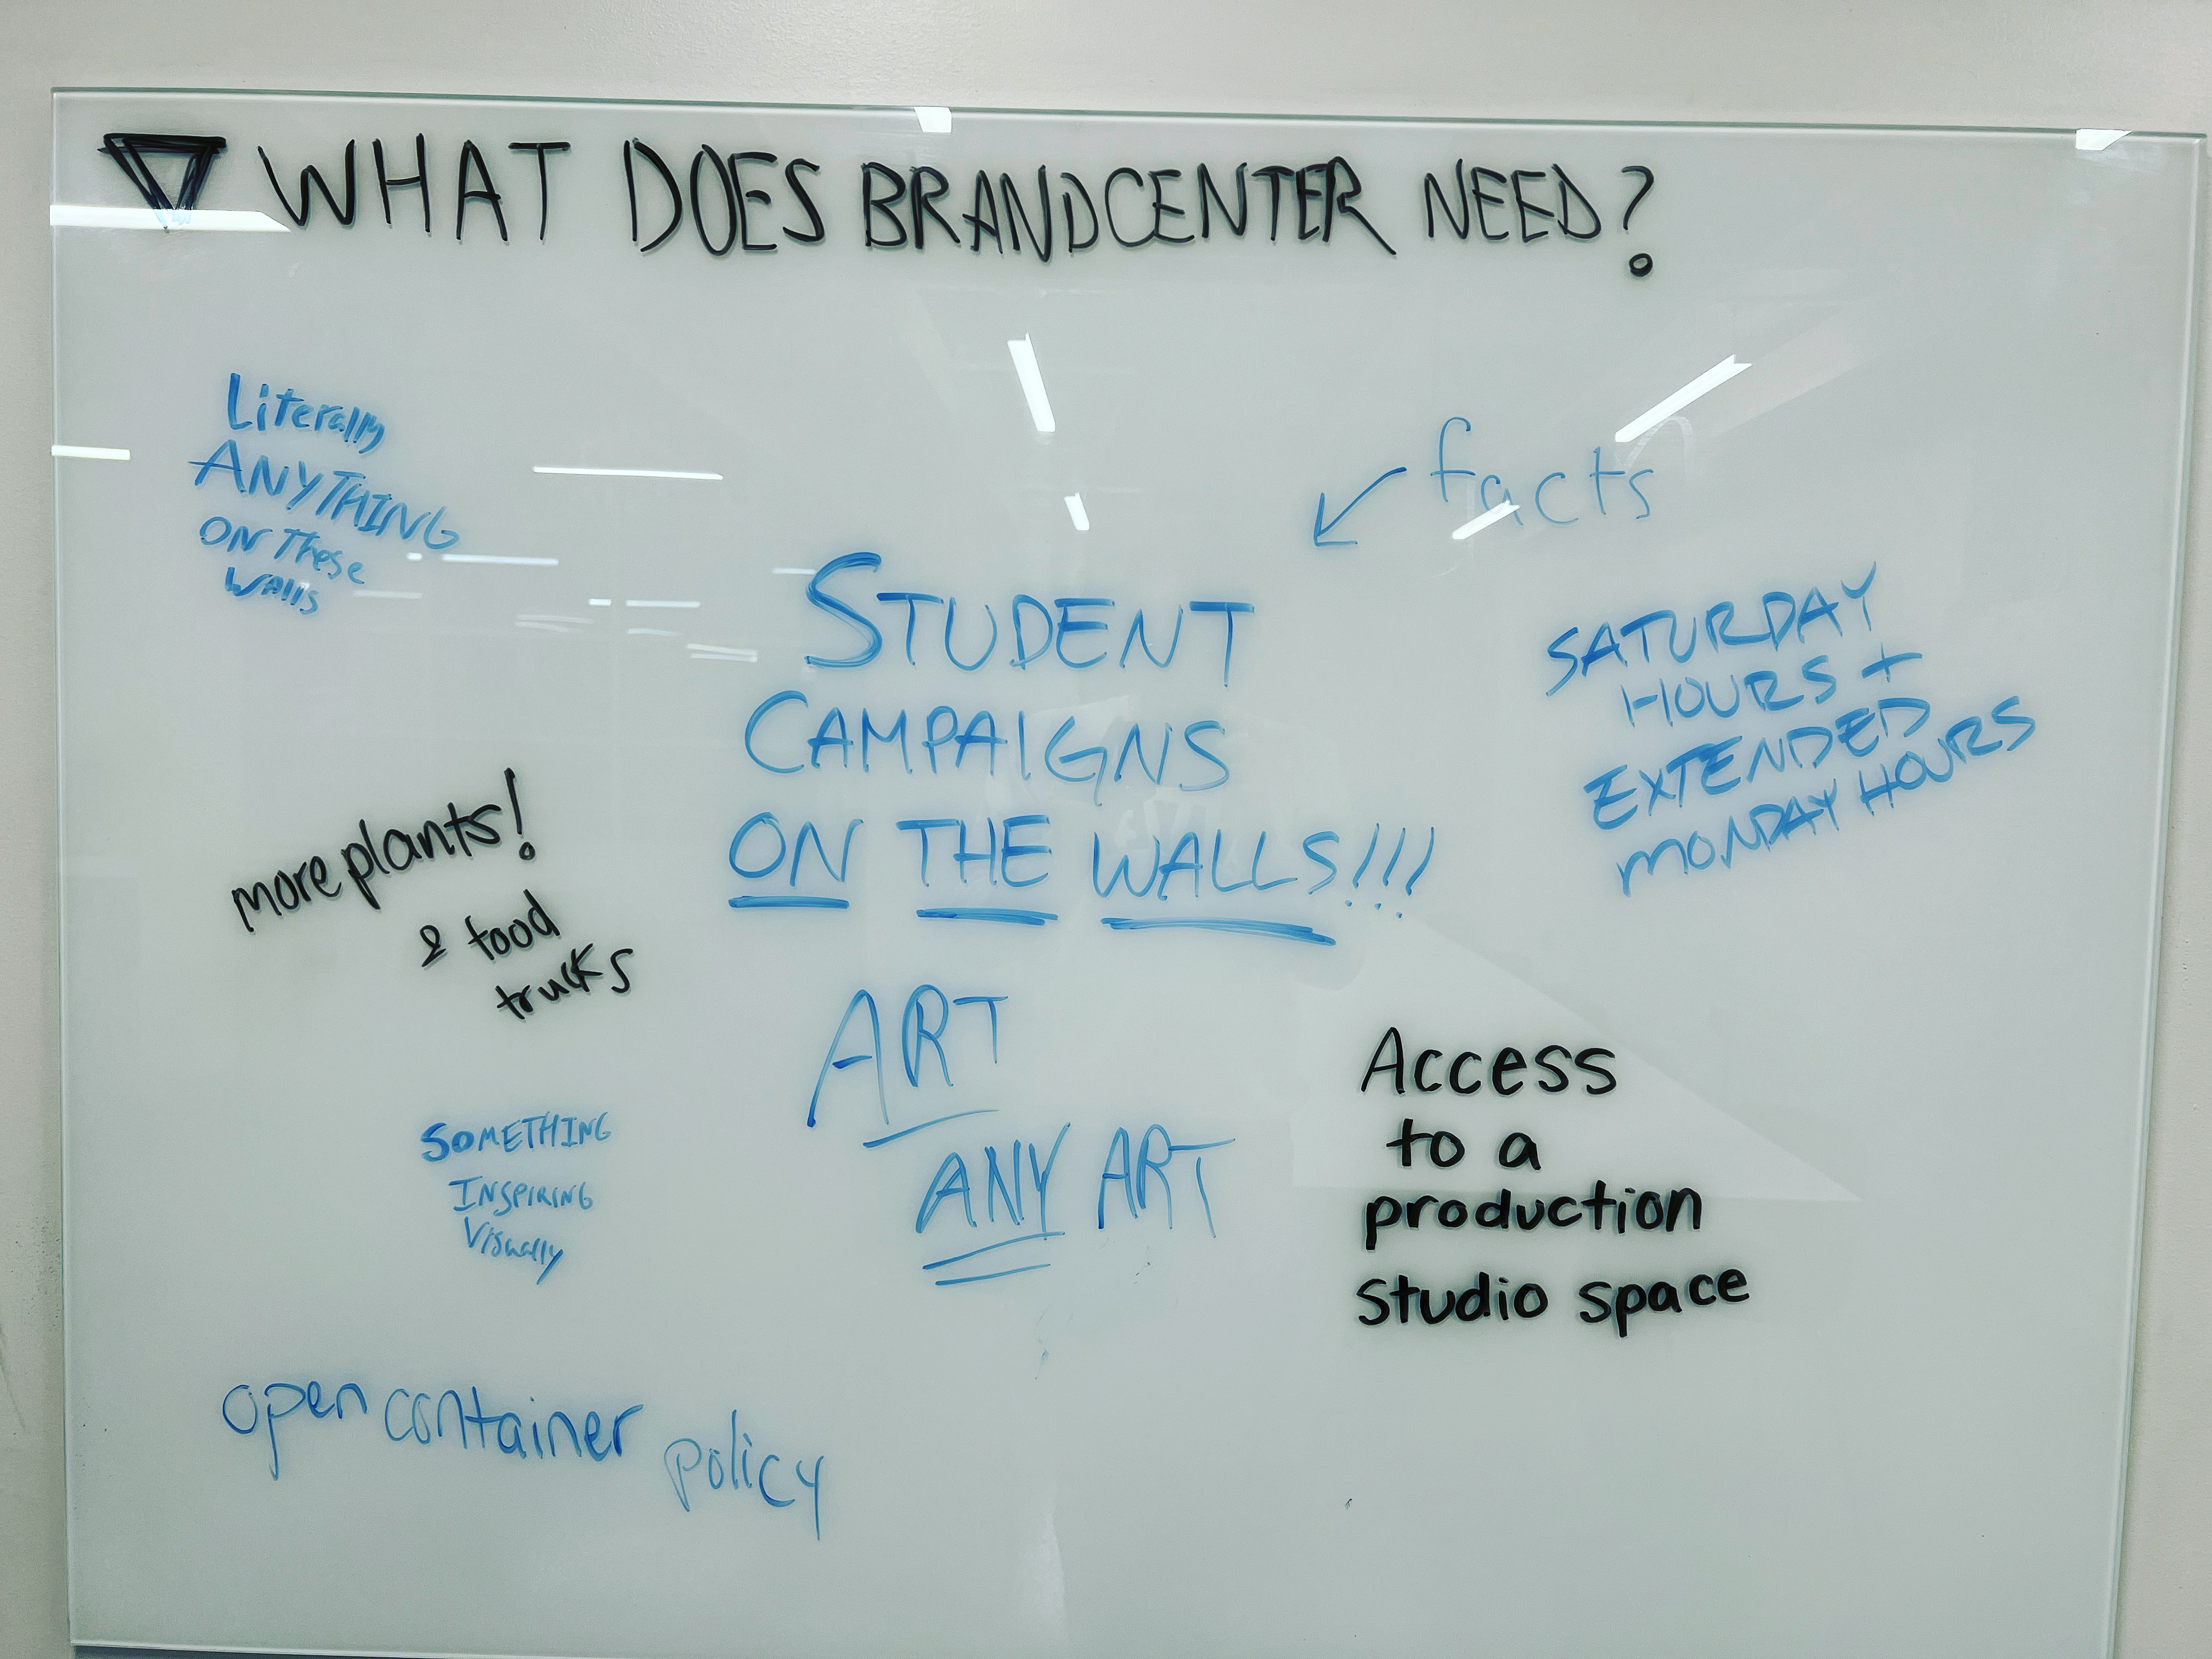 WHAT DOES BRANDCENTER NEED?
Literally
ANYTHING
ON These
Walls
facts
STUDENT
CAMPAIGNS
ON THE WALLS!!!
SATURDAY
HOURS +
EXTENDED
MONDAY HOURS
more plants!
& food
trucks
ART
ANY ART
Access
to a
production
studio space
SOMETHING
INSPIRING
Visually
open container
policy